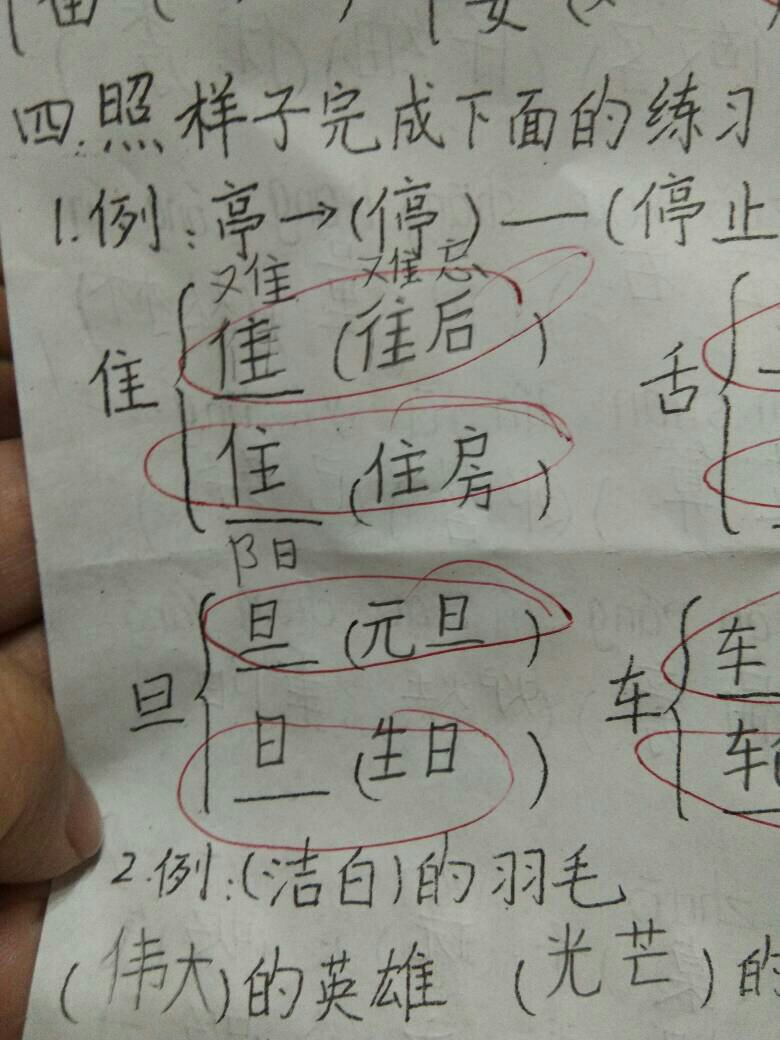 四.照样子完成下面的练习
1.例:亭→(停)—(停止
难 难忘
隹 {佳 (往后)
住 (住房)
舌
阳
旦 {旦 (元旦)
日 (生日)
车 {车
车
2.例:(洁白)的羽毛
(伟大)的英雄 (光芒)的